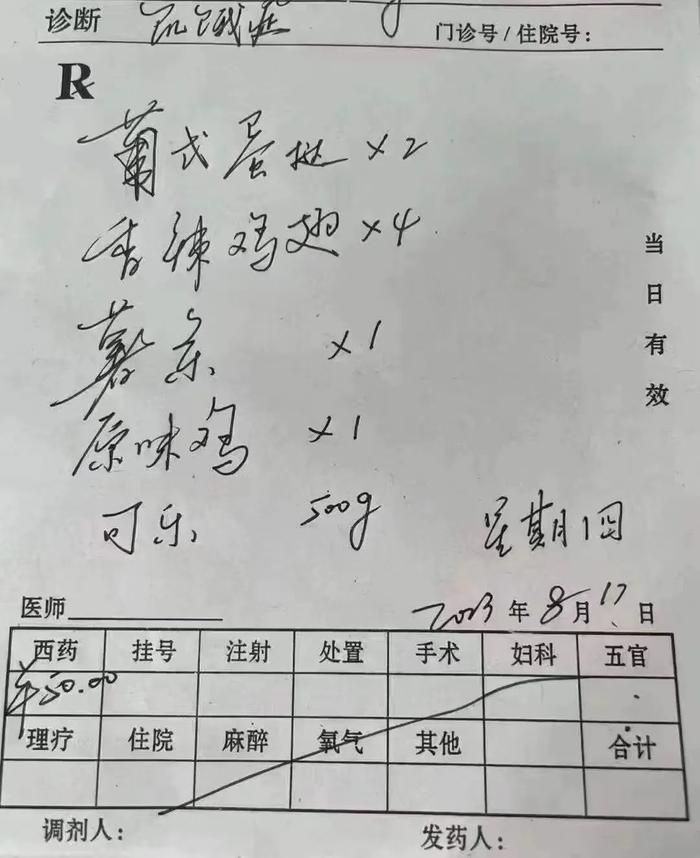 诊断 饥饿症 门诊号/住院号:
R
葡式蛋挞 ×2
香辣鸡翅 ×4
薯条 ×1
原味鸡 ×1
可乐 500g
当日有效
星期四
医师 2023年8月17日
西药 挂号 注射 处置 手术 妇科 五官
¥50.00
理疗 住院 麻醉 氧气 其他 合计
调剂人: 发药人: